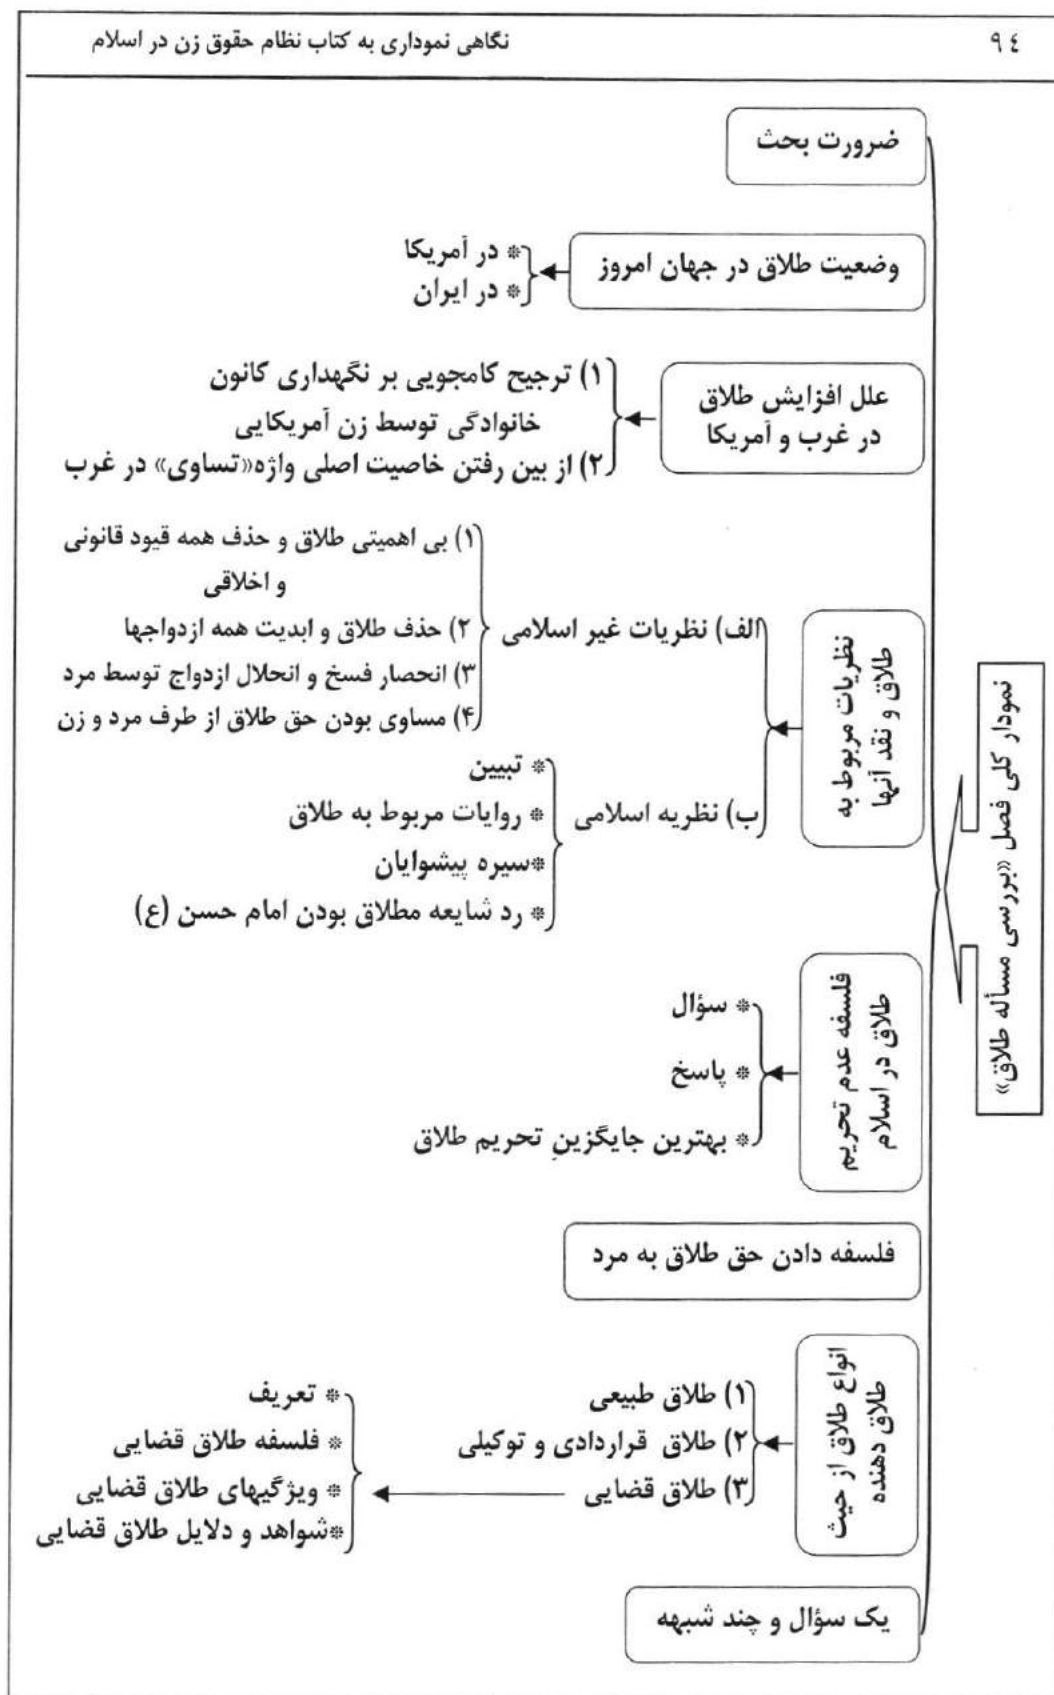 ۹۴
نگاهی نموداری به کتاب نظام حقوق زن در اسلام
نمودار کلی فصل «بررسی مسأله طلاق»
ضرورت بحث
وضعیت طلاق در جهان امروز
* در آمریکا
* در ایران
علل افزایش طلاق
در غرب و آمریکا
۱) ترجیح کامجویی بر نگهداری کانون
خانوادگی توسط زن آمریکایی
۲) از بین رفتن خاصیت اصلی واژه«تساوی» در غرب
نظریات مربوط به
طلاق و نقد آنها
الف) نظریات غیر اسلامی
۱) بی اهمیتی طلاق و حذف همه قیود قانونی
و اخلاقی
۲) حذف طلاق و ابدیت همه ازدواجها
۳) انحصار فسخ و انحلال ازدواج توسط مرد
۴) مساوی بودن حق طلاق از طرف مرد و زن
ب) نظریه اسلامی
* تبیین
* روایات مربوط به طلاق
*سیره پیشوایان
* رد شایعه مطلاق بودن امام حسن (ع)
فلسفه عدم تحریم
طلاق در اسلام
* سؤال
* پاسخ
* بهترین جایگزینِ تحریم طلاق
فلسفه دادن حق طلاق به مرد
انواع طلاق از حیث
طلاق دهنده
۱) طلاق طبیعی
۲) طلاق قراردادی و توکیلی
۳) طلاق قضایی
* تعریف
* فلسفه طلاق قضایی
* ویژگیهای طلاق قضایی
*شواهد و دلایل طلاق قضایی
یک سؤال و چند شبهه